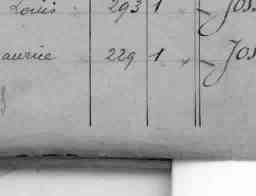 Louis 293 1 Jos
aurice 229 1 Jos